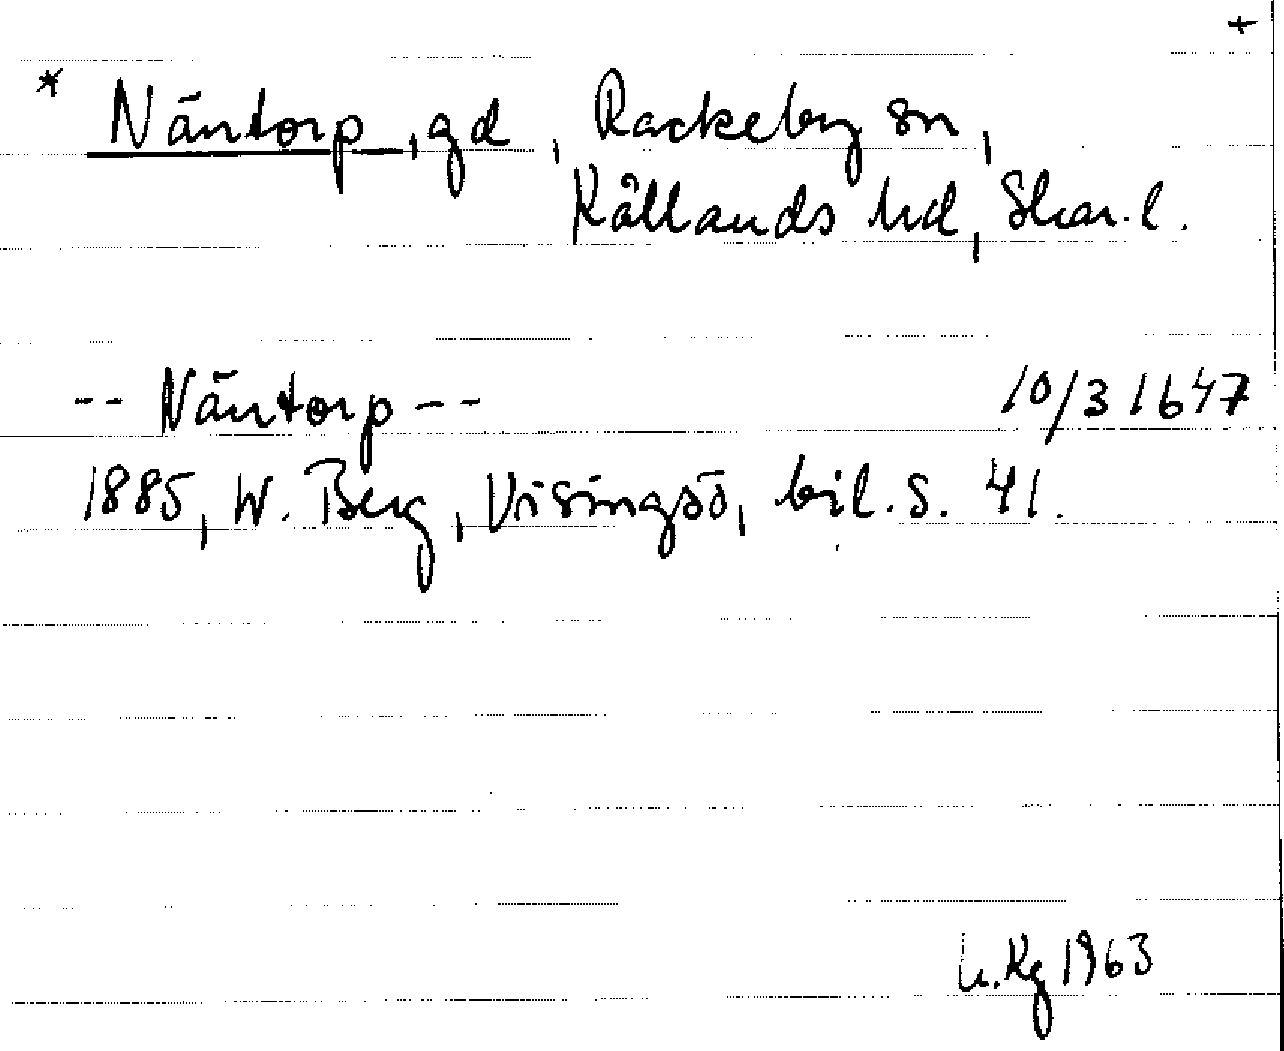 +
* Näntorp, gd, Rackeby sn,
Kållands hd, Skar. l.
-- Näntorp -- 10/3 1647
1885, W. Berg, Visingsö, bil. s. 41.
Kg 1963